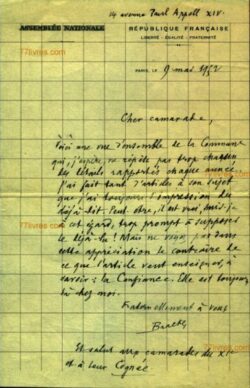 14 avenue Paul Appell XIV.
ASSEMBLÉE NATIONALE
RÉPUBLIQUE FRANÇAISE
LIBERTÉ - ÉGALITÉ - FRATERNITÉ
17livres.com
PARIS, LE 9 mai 1952
Cher camarade,
Voici une vue d'ensemble de la Commune
qui, j'espère, ne répète pas trop chacun
des détails rapportés chaque année.
J'ai fait tant d'articles à son sujet
que j'ai toujours l'impression du
déjà dit. Peut être, il est vrai, suis-je
à cet égard, trop prompt à supposer
le déjà lu! Mais ne voyez pas dans
cette appréciation le contraire de
ce que l'article veut enseigner, à
savoir: la Confiance. Elle est toujours
chez moi.
Fraternellement à vous
Bracke
17livres.com
Et salut aux camarades du XIe
et à leur Cognée